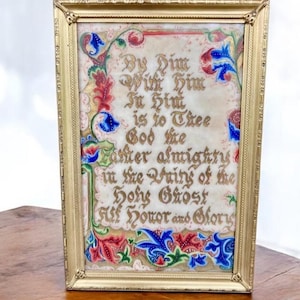 By Him
With Him
In Him
is to Thee
God the
Father almighty
in the Unity of the
Holy Ghost
All Honor and Glory